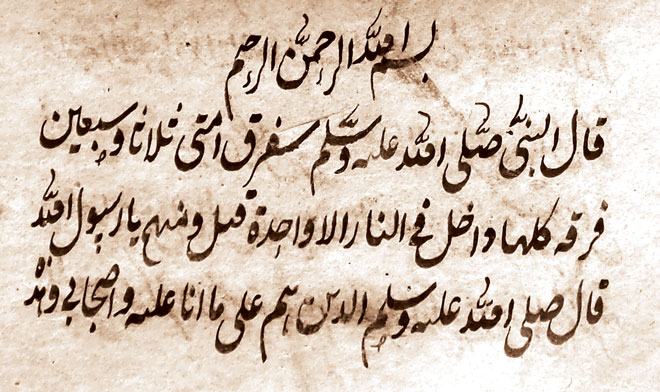 بسم الله الرحمن الرحيم
قال النبي صلى الله عليه وسلم ستفرق امتى ثلاثا وسبعين
فرقه كلها داخل في النار الا واحدة قيل ومنهم يا رسول الله
قال صلى الله عليه وسلم الذين هم على ما انا عليه واصحابي وهذ